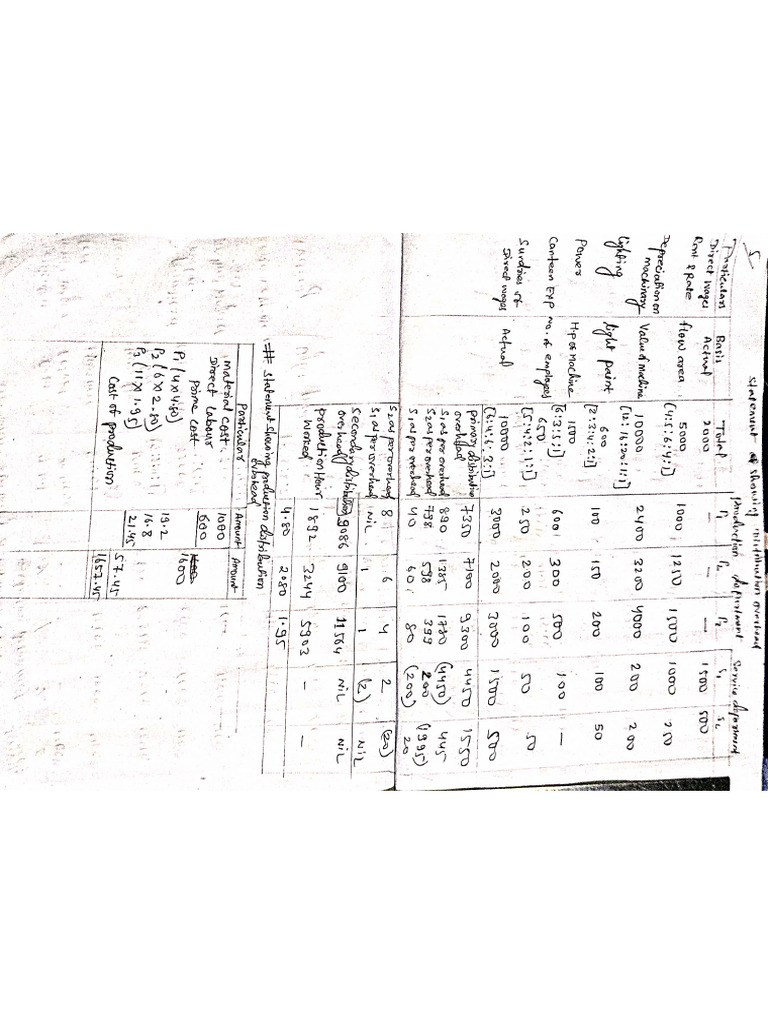 5.
Statement of showing Distribution overhead
Particulars Basis Total Production department Service department
P1 P2 P3 S1 S2
Direct wages Actual 2000 — — — 1500 500
Rent & Rate flow area 5000 1000 1250 1500 1000 250
(4:5:6:4:1)
Depreciation on machinery Value of machine 10000 2400 3200 4000 200 200
(12:16:20:1:1)
lighting light point 600 100 150 200 100 50
[2:3:4:2:1]
Power H.P of Machine 1500 600 300 500 100 —
[6:3:5:1]
Canteen EXP no. of employees 650 250 200 100 50 50
[5:4:2:1:1]
Sundries of Direct wages Actual 10000 3000 2000 3000 1500 500
[6:4:6:3:1]
primary distribution overhead 7350 7100 9300 4450 1550
S1 as per overhead 890 1335 1780 (4450) 445
S2 as per overhead 798 598 399 200 (1995)
S1 as per overhead 40 60 80 (200) 20
S2 as per overhead 8 6 4 2 (20)
S1 as per overhead Nil 1 1 (2) Nil
Secondary distribution overhead 9086 9100 11564 Nil Nil
production Hour worked 1892 3244 5903 — —
4.80 2.80 1.95
# Statement showing production distribution overhead
Particular Amount Amount
material cost 1000
Direct labour 600
prime cost 1600
P1 (4 x 4.80) 19.2
P2 (6 x 2.80) 16.8
P3 (11 x 1.95) 21.45 57.45
Cost of production 1657.45